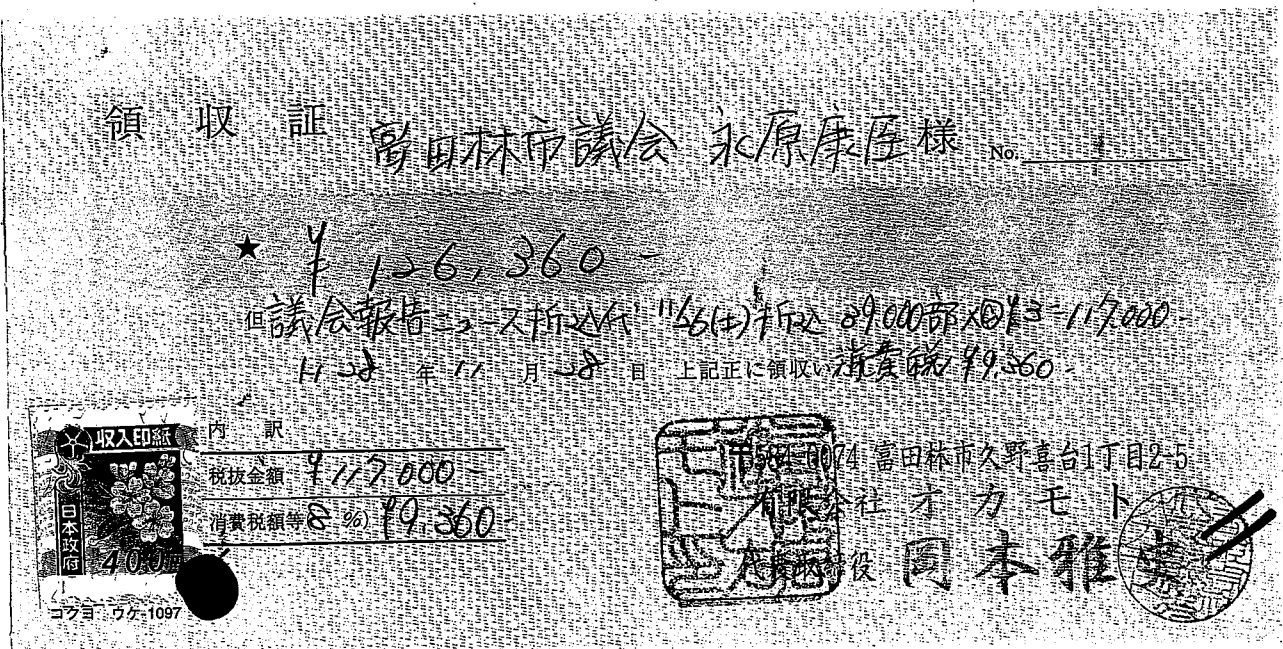 領収証 富田林市議会 永原康臣様 No.
★ ¥126,360-
但 議会報告ニュース折込代 11/26(土)折込 39,000部×@¥3=117,000-
H28年11月28日 上記正に領収い 消費税 ¥9,360-
収入印紙
日本政府
400円
内訳
税抜金額 ¥117,000-
消費税額等(8%) ¥9,360-
コクヨ ウケ-1097
〒584-0074 富田林市久野喜台1丁目2-5
有限会社オカモト
代表取締役 岡本雅